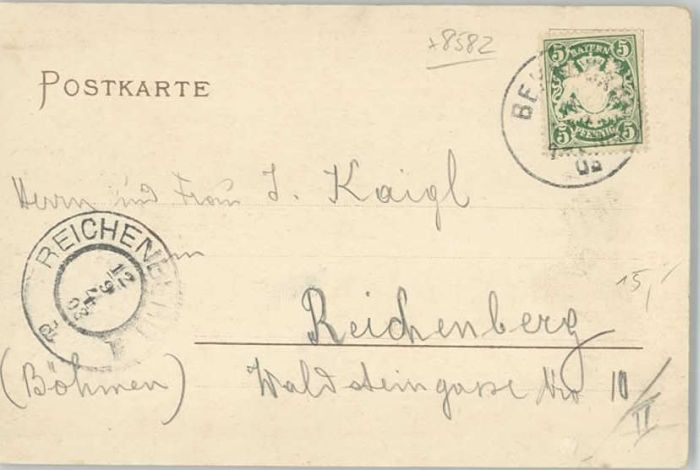 x8582
5 BAYERN 5
5 PFENNIG 5
BE
POSTKARTE
Herrn und Frau J. Kaigl
REICHENB
12
9
03
a
in
15,
Reichenberg
(Böhmen) Waldsteingasse Nro 10/II